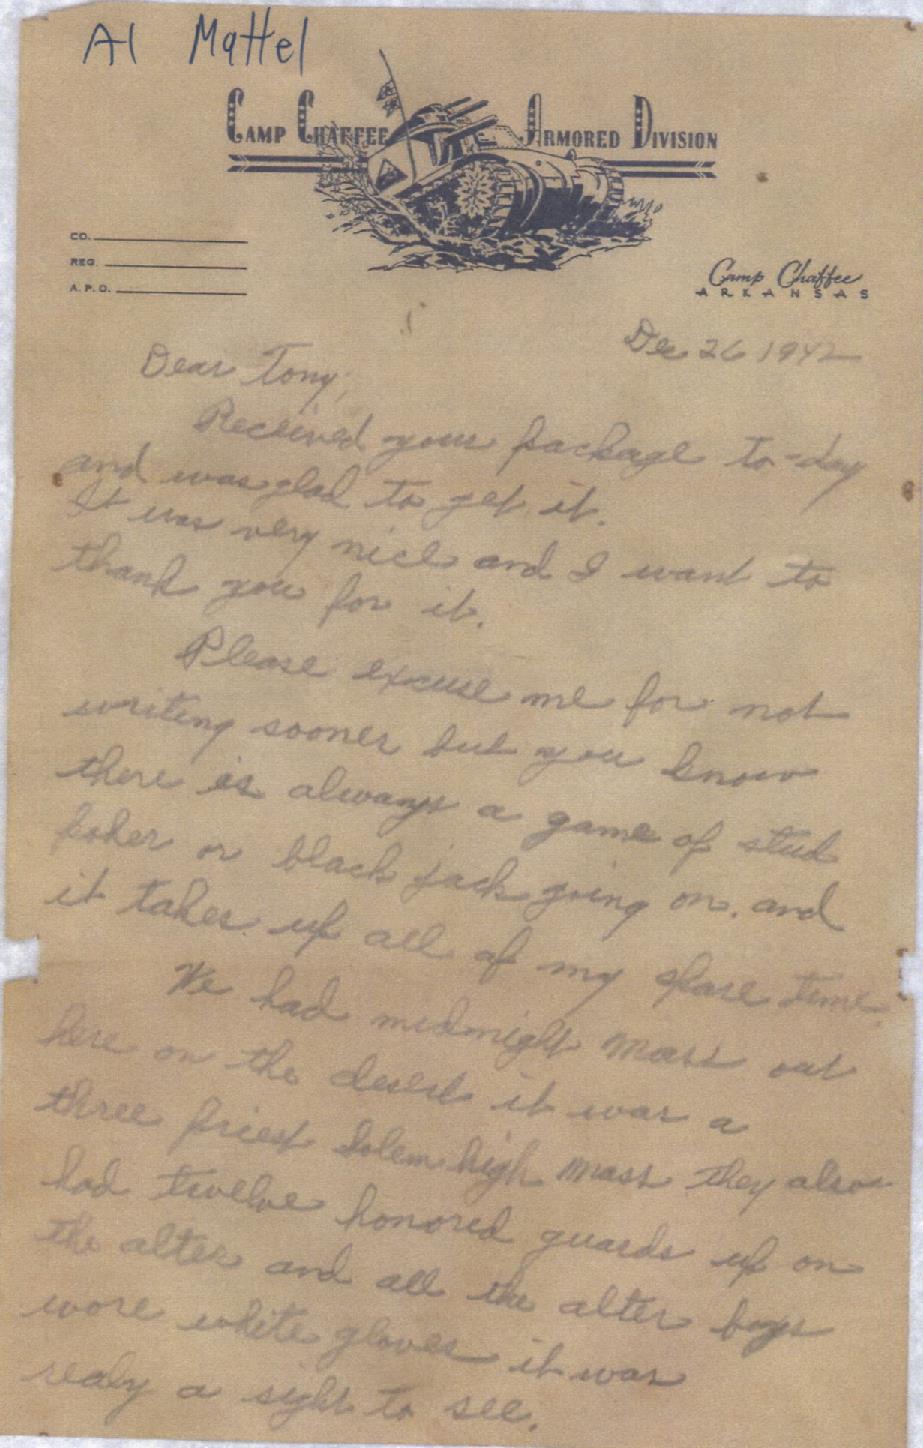 Al Mattel
CAMP CHAFFEE ARMORED DIVISION
CO.
REG.
A.P.O.
Camp Chaffee
ARKANSAS
Dec 26 1942
Dear Tony,
Received your package to-day
and was glad to get it.
It was very nice and I want to
thank you for it.
Please excuse me for not
writing sooner but you know
there is always a game of stud
poker or black jack going on. and
it takes up all of my spare time.
We had midnight mass out
here on the desert it was a
three priest solem high mass they also
had twelve honored guards up on
the alter and all the alter boys
wore white gloves it was
realy a sight to see.